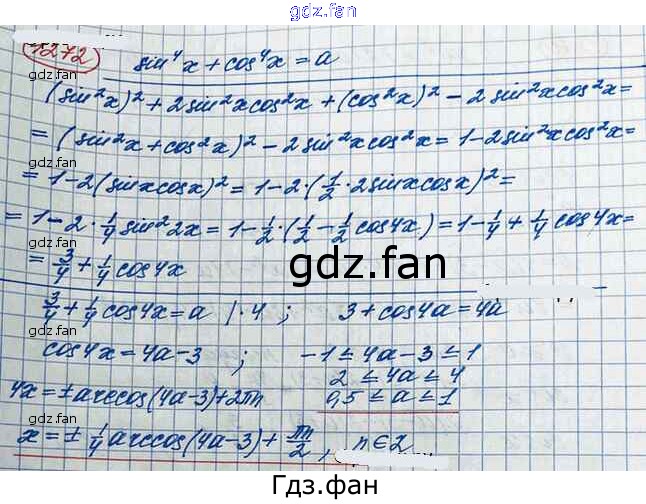 gdz.fan
1272
sin⁴x + cos⁴x = a
gdz.fan gdz.fan
(sin²x)² + 2sin²xcos²x + (cos²x)² − 2sin²xcos²x =
= (sin²x + cos²x)² − 2sin²xcos²x = 1 − 2sin²xcos²x =
= 1 − 2(sinxcosx)² = 1 − 2·(1/2·2sinxcosx)² =
= 1 − 2·1/4 sin²2x = 1 − 1/2·(1/2 − 1/2 cos4x) = 1 − 1/4 + 1/4 cos4x =
= 3/4 + 1/4 cos4x
gdz.fan
3/4 + 1/4 cos4x = a |·4 ; 3 + cos4a = 4a
cos4x = 4a − 3 ; −1 ≤ 4a − 3 ≤ 1
2 ≤ 4a ≤ 4
4x = ± arccos(4a−3) + 2πn 0,5 ≤ a ≤ 1
x = ± 1/4 arccos(4a−3) + πn/2 , n∈Z
gdz.fan gdz.fan
Гдз.фан